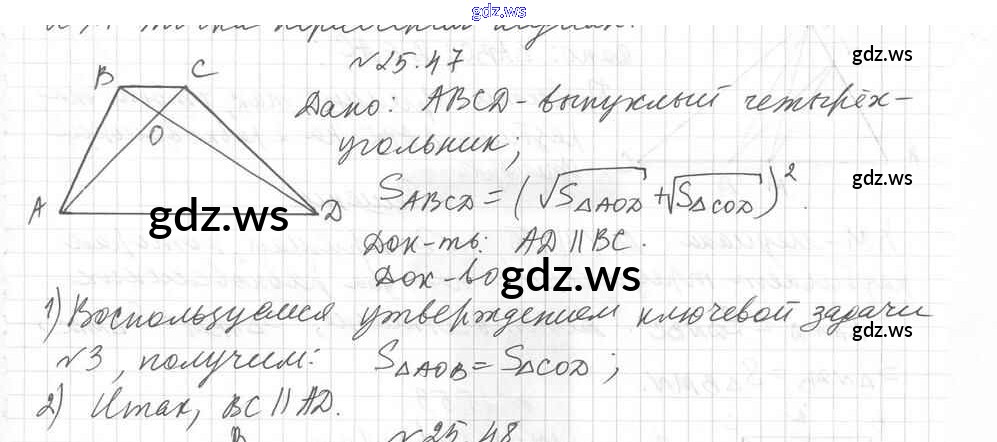 gdz.ws
точка пересечения
№25.47
gdz.ws
B C
O
A D
Дано: ABCD - выпуклый четырёх-
угольник;
S_ABCD = (√S_ΔAOD + √S_ΔCOD)².
gdz.ws
gdz.ws
Док-ть: AD ∥ BC.
Док-во
gdz.ws
1) Воспользуемся утверждением ключевой задачи
gdz.ws
№3, получим: S_ΔAOB = S_ΔCOD;
2) Итак, BC ∥ AD.
B №25.48